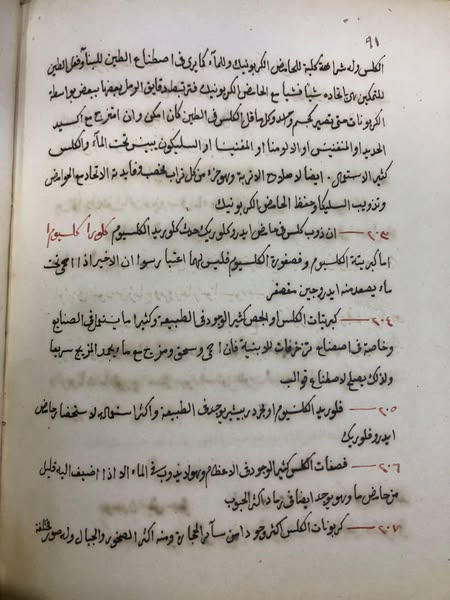 ٩١
الكلس وله شراهة كلية للحامض الكربونيك وللماء كما يرى في اصطناع الطين للبناء وفعل الطين
للتمكين باتحاده شيأ فشيأ مع الحامض الكربونيك فترتبط دقايق الرمل بعضها ببعض بواسطة
الكربونات حتى تصير كجسم واحد وكل ما قل الكلس في الطين كان امكن وان امتزج مع اكسيد
الحديد او المنغنيس او الالومنا او المغنيسا او السليكون ييبس تحت الماء والكلس
كثير الاستعمال. ايضا لاصلاح الاتربة وهو جزء من كل تراب مخصب فايدته الاتحاد مع الحوامض
وتذويب السليكا وحفظ الحامض الكربونيك
٢٠٣ — ان ذوب كلس في حامض ايدروكلوريك حدث كلوريد الكلسيوم كلورا كلسيوم
اما كبريتة الكلسيوم وفصفورة الكلسيوم فليس لهما اعتبار سوا ان الاخير اذا احمي تحت
ماء يصعد منه ايدروجين مفصفر
٢٠٤ — كبريتات الكلس او الجص كثير الوجود في الطبيعة وكثيرا ما يستعمل في الصنايع
وخاصة في اصطناع تزخرفات للابنية فان احمي وسحق ومزج مع ماء يجمد المزيج سريعا
ولذلك يصلح لاصطناعه قوالب
٢٠٥ — فلوريد الكلسيوم او الخ يوجد في الطبيعة واكثر استعماله لاستحضار حامض
ايدروفلوريك
٢٠٦ — فصفات الكلس كثير الوجود في الاعظام وهو لا يذوب في الماء الا اذا اضيف اليه قليل
من حامض ما وهو يوجد ايضا في رماد اكثر الحبوب
٢٠٧ — كربونات الكلس اكثر وجودا من سائر الحجارة ومنه اكثر الصخور والجبال وله صور مختلفة